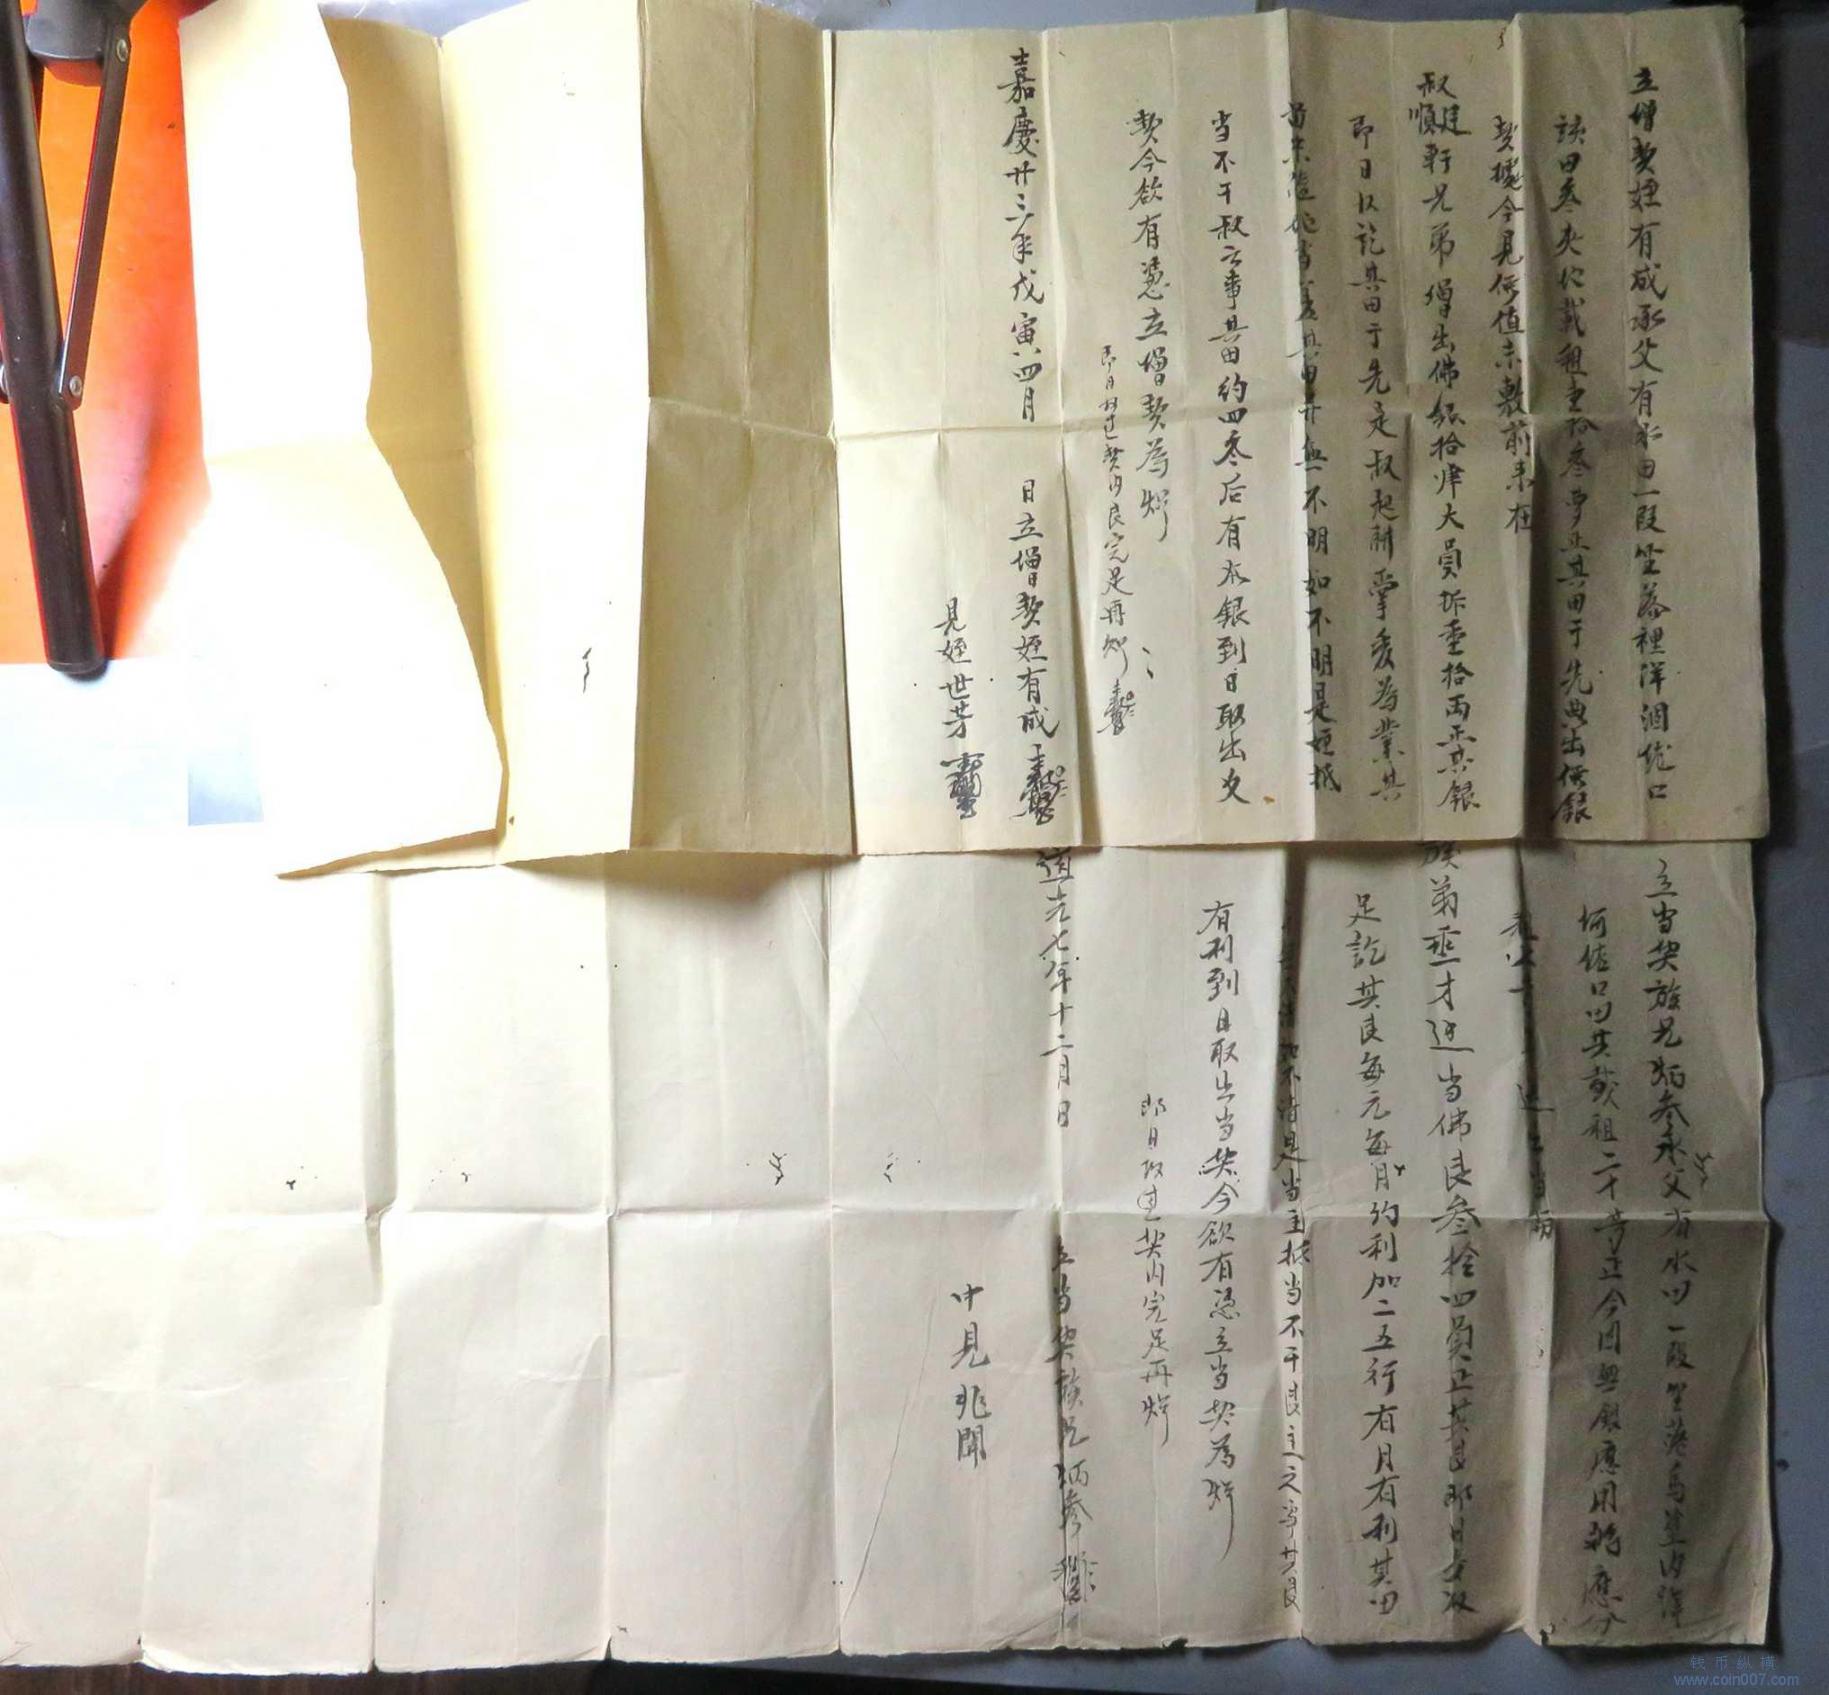 立增契姪有成承父有水田一段坐落裡洋涸垅口
該田叁大坵載租壹拾叁亨正其田于先典出价銀
契據今見价值未敷前来在
叔建順軒兄弟增出佛銀拾肆大員折重拾両正其銀
即日收訖其田于先是叔起耕掌爰為業其
当不明如不明是姪抵
当不干叔之事其田約四叁后有本銀到日取出文
契今欲有憑立增契為炤
即日收过契内艮完足再炤
嘉慶廿三年戊寅四月 日立增契姪有成
見姪世芳
立当契族兄炳参承父有水田一段坐落烏垄内洋
田其載租二十芳正今因無銀應用將應分
族弟丕才边当佛艮叁拾四員正其艮即日交收
足訖其艮每元每月約利加二五行有月有利其田
不清是当主抵当不干艮主之事其艮
有利到日取出当契今欲有憑立当契為炤
即日收过契内完足再炤
道光七年十二月日
立当契族兄炳参
中見兆聞
钱币纵横
www.coin007.com